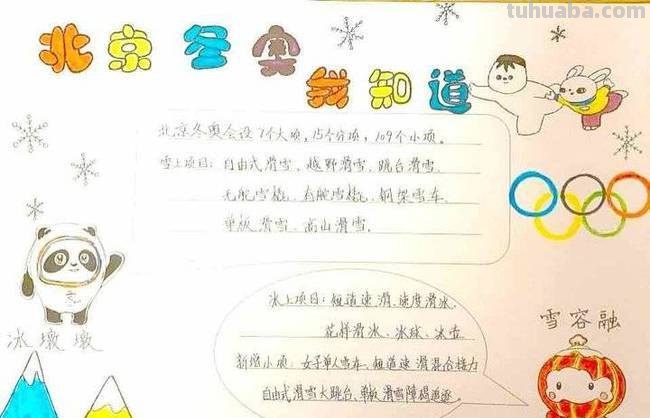 tuhuaba.com
北京冬奥
我知道
北京冬奥会设7个大项，15个分项，109个小项。
雪上项目：自由式滑雪、越野滑雪、跳台滑雪、
无舵雪橇、有舵雪橇、钢架雪车、
单板滑雪、高山滑雪。
冰上项目：短道速滑、速度滑冰、
花样滑冰、冰球、冰壶
新增小项：女子单人雪车、短道速滑混合接力
自由式滑雪大跳台、单板滑雪障碍追逐。
冰墩墩
雪容融